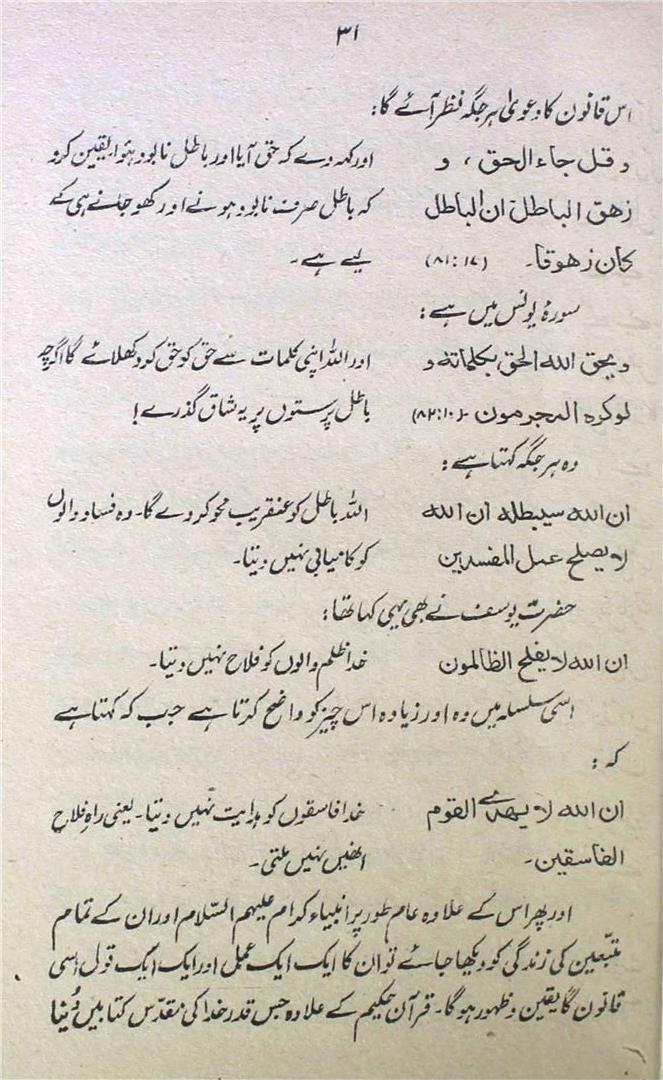 ۳۱
اس قانون کا دعویٰ ہر جگہ نظر آئے گا:
وقل جاء الحق، و
زهق الباطل ان الباطل
كان زهوقا۔ (۸۱:۱۷)
اور کہہ دے کہ حق آیا اور باطل نابود ہوا یقین کرو
کہ باطل صرف نابود ہونے اور کھو جانے ہی کے
لیے ہے۔
سورۂ یونس میں ہے:
ويحق الله الحق بكلماته و
لوكره المجرمون۔ (۸۲:۱۰)
اور اللہ اپنی کلمات سے حق کو حق کو دکھلائے گا اگرچہ
باطل پرستوں پر یہ شاق گذرے!
وہ ہر جگہ کہتا ہے:
ان الله سيبطله ان الله
لا يصلح عمل المفسدين
اللہ باطل کو عنقریب محو کر دے گا۔ وہ فساد والوں
کو کامیابی نہیں دیتا۔
حضرت یوسف نے بھی یہی کہا تھا:
ان الله لا يفلح الظالمون
خدا ظلم والوں کو فلاح نہیں دیتا۔
اسی سلسلہ میں وہ اور زیادہ اس چیز کو واضح کرتا ہے جب کہ کہتا ہے
کہ:
ان الله لا يهدى القوم
الفاسقين۔
خدا فاسقوں کو ہدایت نہیں دیتا۔ یعنی راہِ فلاح
انھیں نہیں ملتی۔
اور پھر اس کے علاوہ عام طور پر انبیاء کرام علیہم السّلام اور ان کے تمام
متبّعین کی زندگی کو دیکھا جائے تو ان کا ایک ایک عمل اور ایک ایک قول اسی
قانون کا یقین و ظہور ہوگا۔ قرآن حکیم کے علاوہ جس قدر خدا کی مقدّس کتابیں دُنیا